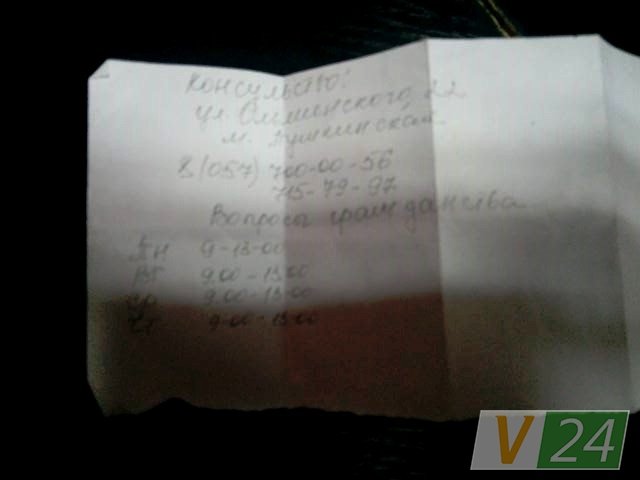 Консульство:
ул. Ольминского, 22
м. Пушкинская
8(057) 700-00-56
715-79-97
Вопросы гражданства
Пн 9-13-00
Вт 9.00-13.00
Ср 9.00-13.00
Чт 9-00-13.00
V24